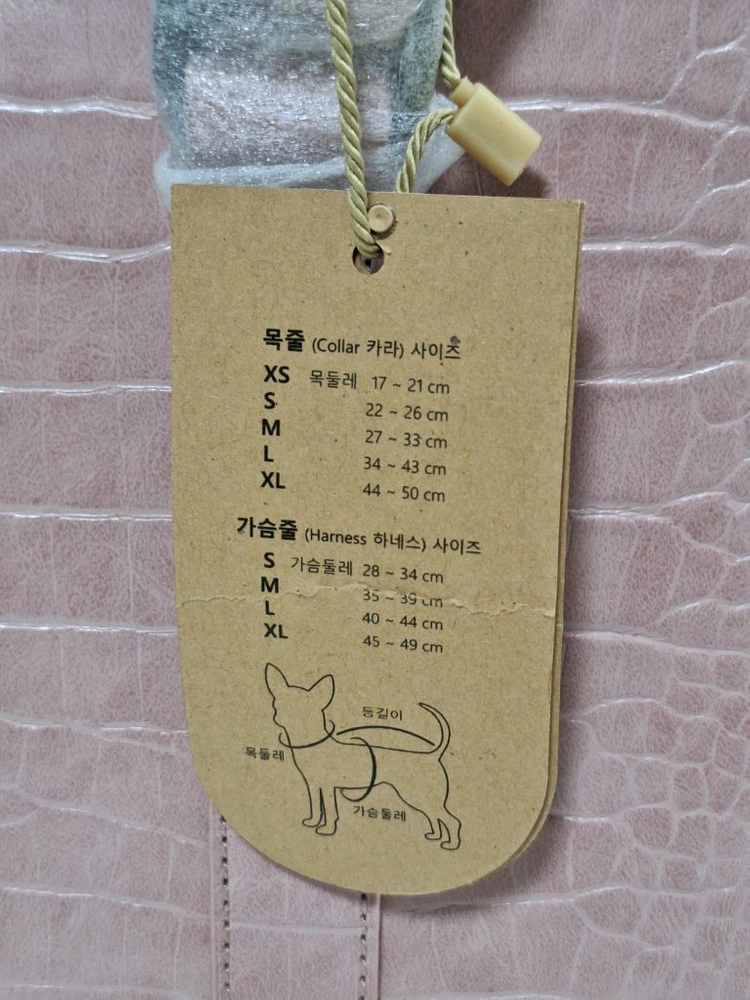 목줄 (Collar 카라) 사이즈
XS 목둘레 17 ~ 21 cm
S 22 ~ 26 cm
M 27 ~ 33 cm
L 34 ~ 43 cm
XL 44 ~ 50 cm
가슴줄 (Harness 하네스) 사이즈
S 가슴둘레 28 ~ 34 cm
M 35 ~ 39 cm
L 40 ~ 44 cm
XL 45 ~ 49 cm
등길이
목둘레
가슴둘레